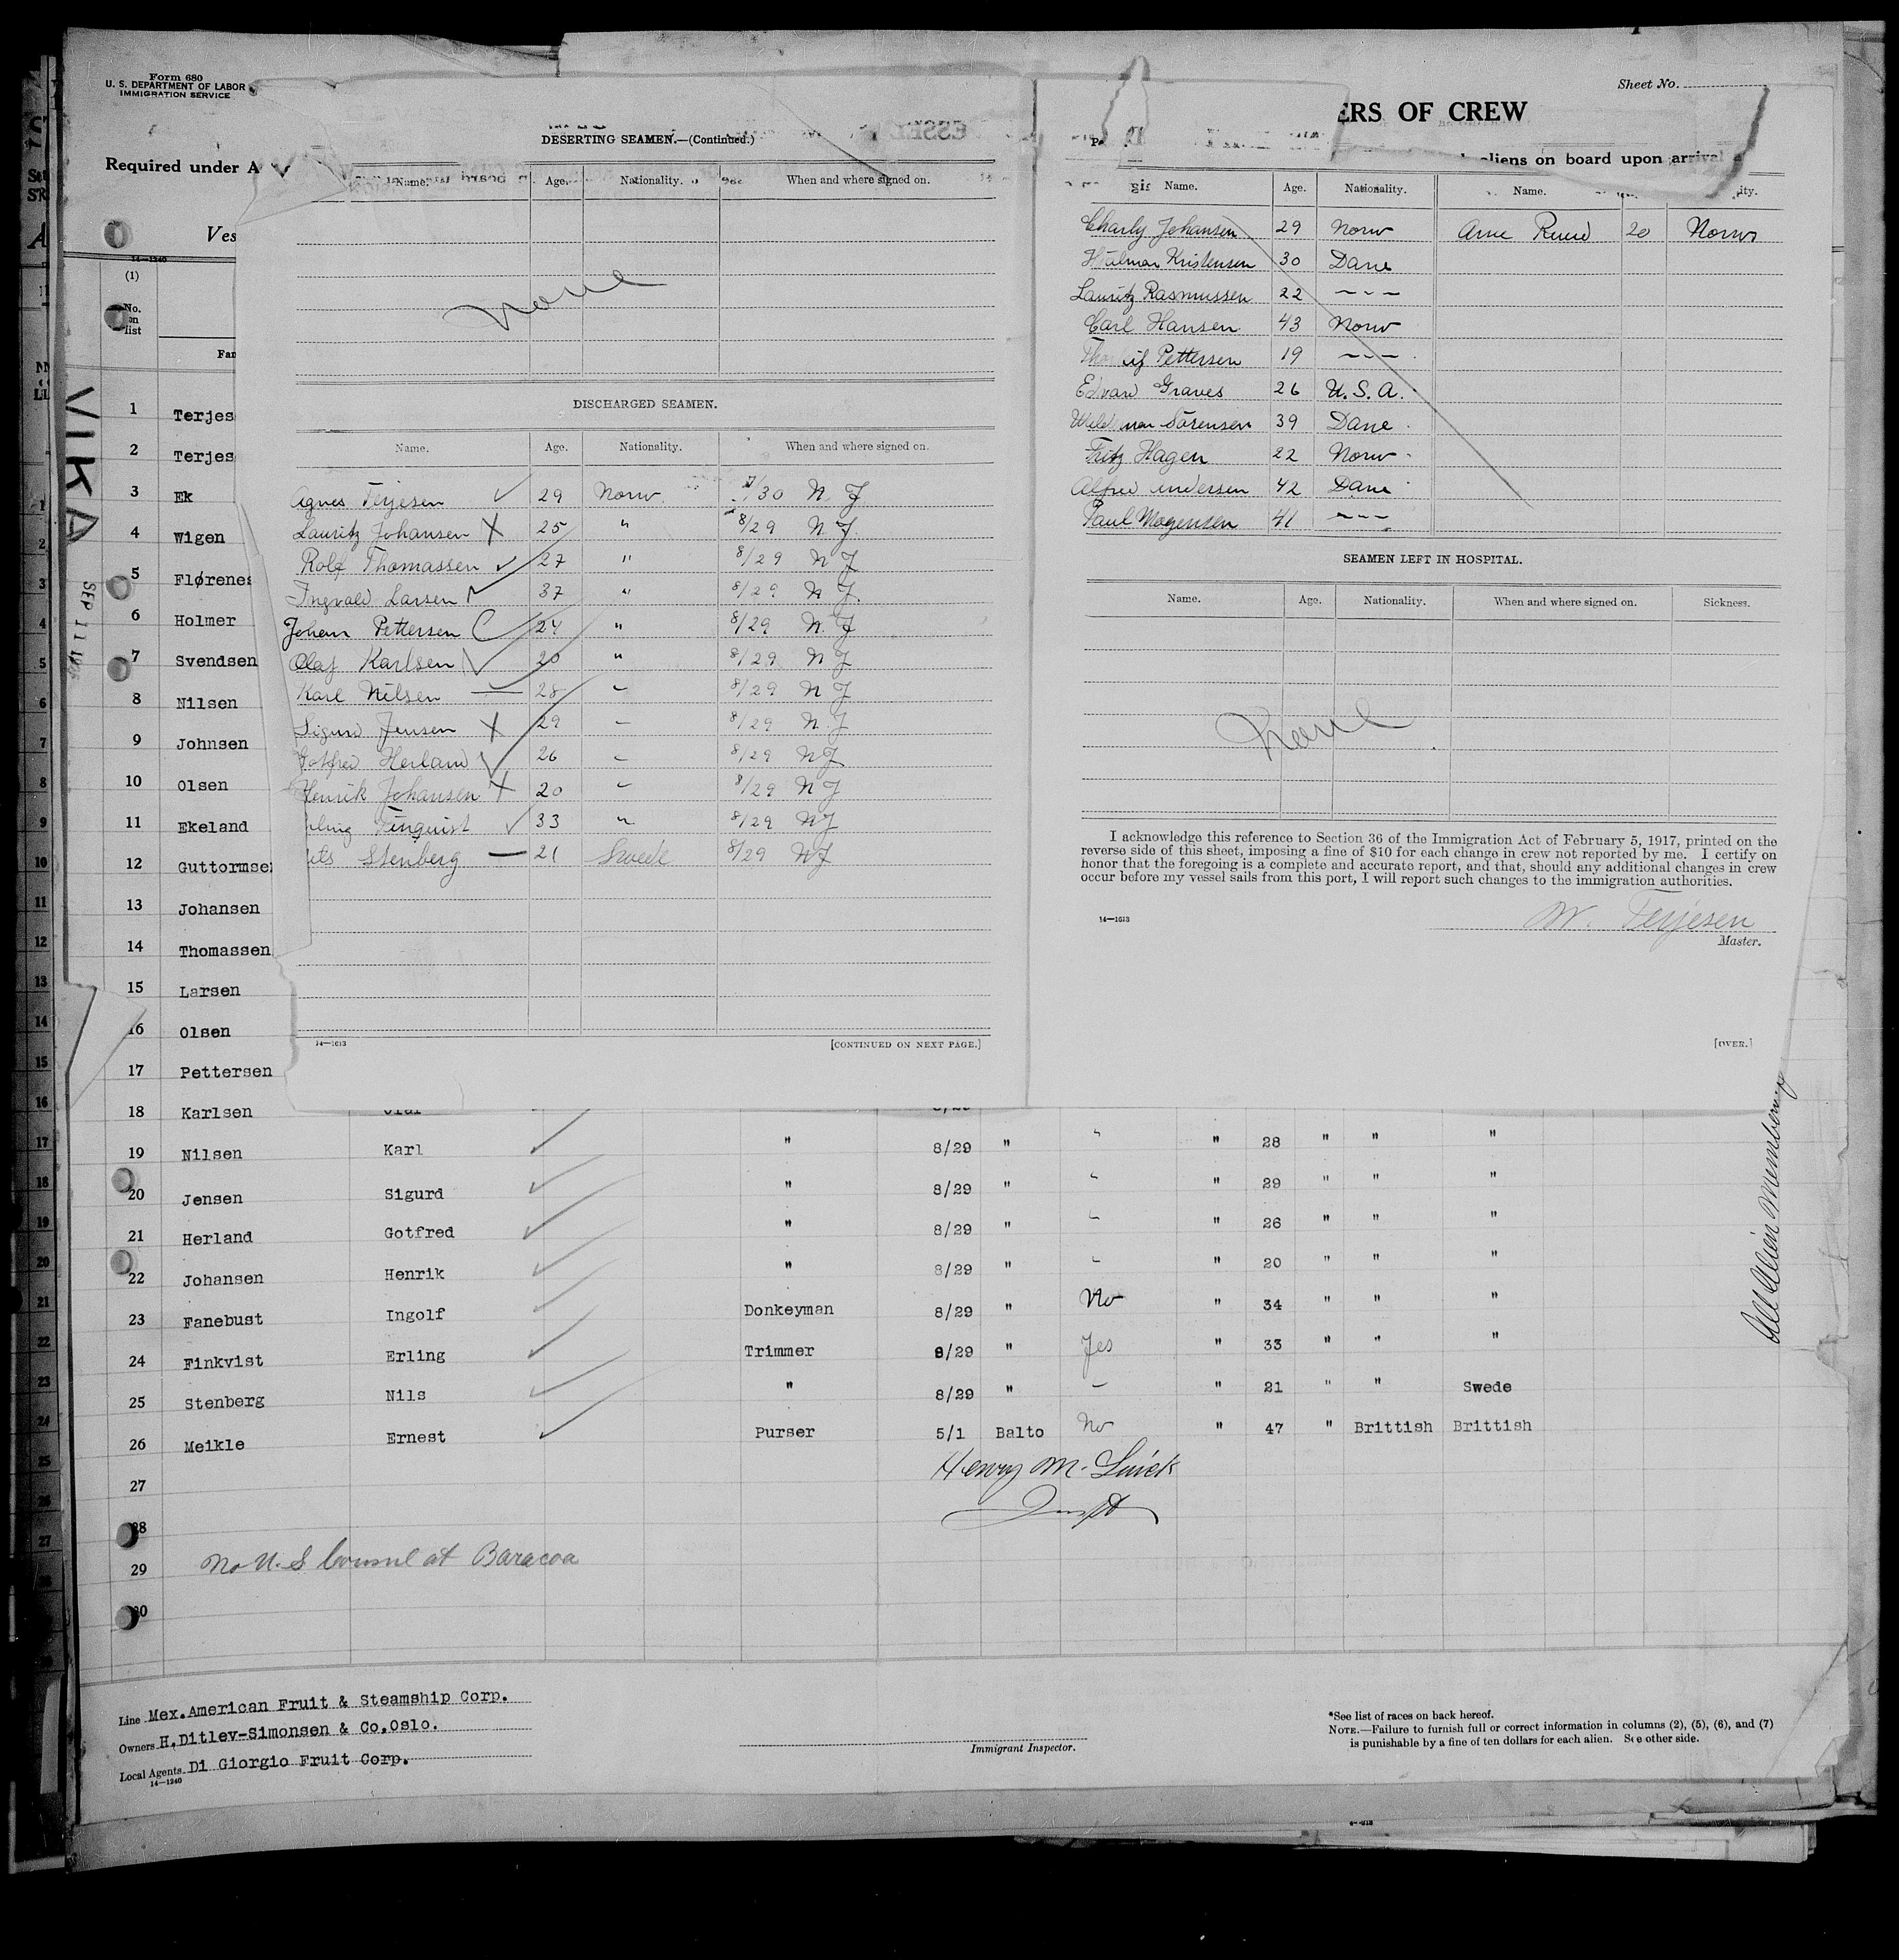 Form 680
U. S. DEPARTMENT OF LABOR
IMMIGRATION SERVICE
Required under A
Ves
14—1240
(1)
No.
on
list
Fam
VIKA
SEP 11
1 Terjes
2 Terjes
3 Ek
4 Wigen
5 Flørenes
6 Holmer
7 Svendsen
8 Nilsen
9 Johnsen
10 Olsen
11 Ekeland
12 Guttormsen
13 Johansen
14 Thomassen
15 Larsen
16 Olsen
17 Pettersen
18 Karlsen
DESERTING SEAMEN.—(Continued.)
Name. Age. Nationality. When and where signed on.
None
DISCHARGED SEAMEN.
Name. Age. Nationality. When and where signed on.
Agnes Terjesen 29 Norw. 7/30 N. J
Lauritz Johansen X 25 " 8/29 N. J.
Rolf Thomassen 27 " 8/29 N J
Ingvald Larsen 37 " 8/29 N J.
Johan Pettersen 24 " 8/29 N. J
Olaf Karlsen 20 " 8/29 N J
Karl Nilsen 28 " 8/29 N J
Sigurd Jensen X 29 " 8/29 N. J
Gotfred Herland 26 " 8/29 N J
Henrik Johansen X 20 " 8/29 N J
rling Finquist 33 " 8/29 N J
Stenberg 21 Swede 8/29 N J
14—1613
[CONTINUED ON NEXT PAGE.]
Sheet No.
ERS OF CREW
aliens on board upon arrival
Name. Age. Nationality. Name. ity.
Charly Johansen 29 Norw Arne Ruud 20 Norw
Hjalmar Kristensen 30 Dane
Lauritz Rasmussen 22 – – –
Carl Hansen 43 Norw
Pettersen 19 – – –
Edvard Graves 26 U. S. A.
Sörensen 39 Dane
Fritz Hagen 22 Norw
Alfred Andersen 42 Dane
Paul Mogensen 41 – – –
SEAMEN LEFT IN HOSPITAL.
Name. Age. Nationality. When and where signed on. Sickness.
None
I acknowledge this reference to Section 36 of the Immigration Act of February 5, 1917, printed on the
reverse side of this sheet, imposing a fine of $10 for each change in crew not reported by me. I certify on
honor that the foregoing is a complete and accurate report, and that, should any additional changes in crew
occur before my vessel sails from this port, I will report such changes to the immigration authorities.
14—1613
W. Terjesen
Master.
[OVER.]
19 Nilsen Karl " 8/29 " " " 28 " " "
20 Jensen Sigurd " 8/29 " " " 29 " " "
21 Herland Gotfred " 8/29 " " " 26 " " "
22 Johansen Henrik " 8/29 " " " 20 " " "
23 Fanebust Ingolf Donkeyman 8/29 " No " 34 " " "
24 Finkvist Erling Trimmer 8/29 " Yes " 33 " " "
25 Stenberg Nils " 8/29 " " " 21 " " Swede
26 Meikle Ernest Purser 5/1 Balto No " 47 " Brittish Brittish
27
Henry M.
28
Inspt
29 No U. S Consul at Baracoa
30
Line Mex.American Fruit & Steamship Corp.
Owners H,Ditlev-Simonsen & Co,Oslo.
Local Agents Di Giorgio Fruit Corp.
14—1240
Immigrant Inspector.
*See list of races on back hereof.
NOTE.—Failure to furnish full or correct information in columns (2), (5), (6), and (7)
is punishable by a fine of ten dollars for each alien. See other side.